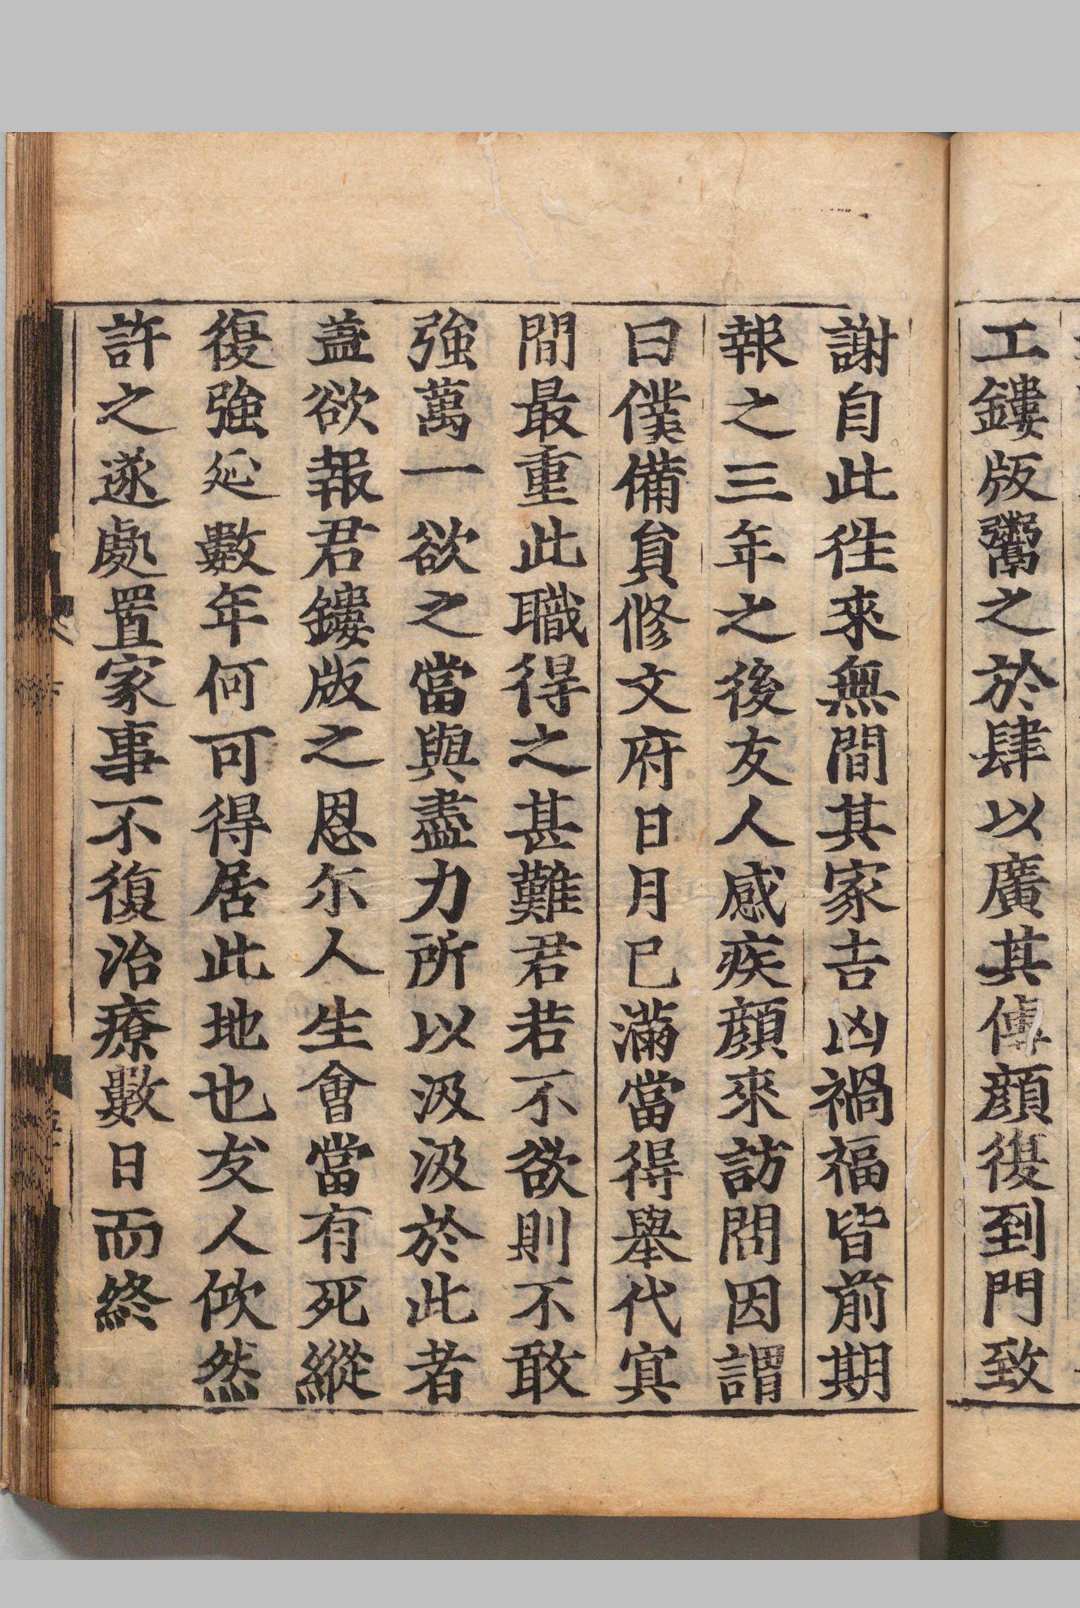 工鏤版鬻之於肆以廣其傳顔復到門致
謝自此徃來無間其家吉凶禍福皆前期
報之三年之後友人感疾顔來訪問因謂
曰僕備負修文府日月已滿當得舉代冥
間最重此職得之甚難君若不欲則不敢
強萬一欲之當與盡力所以汲汲於此者
盖欲報君鏤版之恩尓人生會當有死縱
復強延數年何可得居此地也友人佽然
許之遂處置家事不復治療數日而終